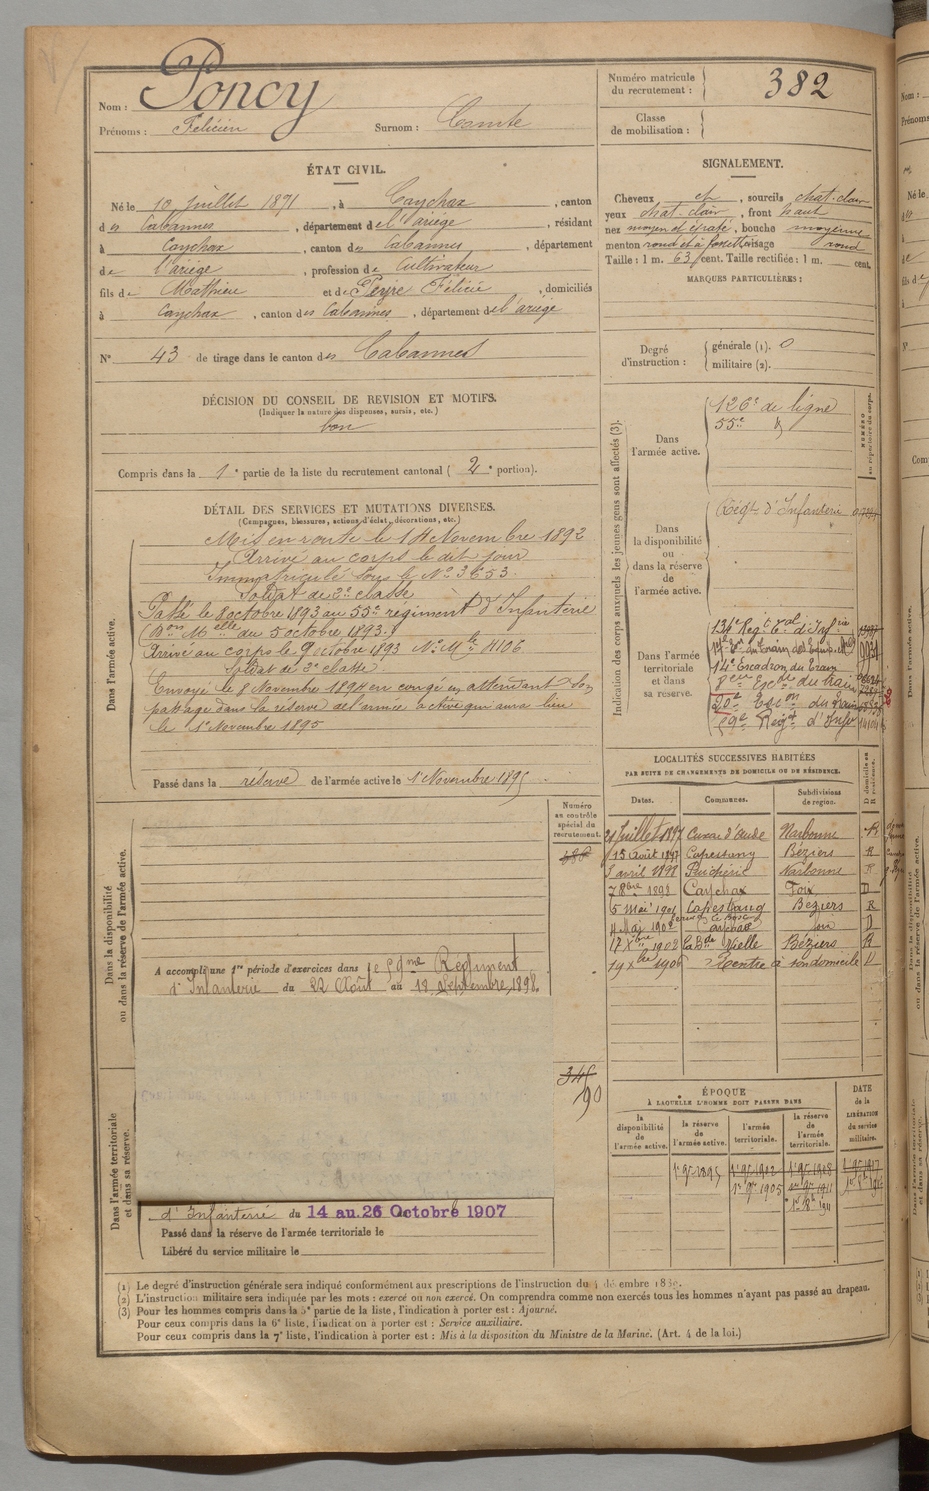 Nom : Poncy
Prénoms : Félicien Surnom : Comte
Numéro matricule du recrutement : 382
Classe de mobilisation :
ÉTAT CIVIL.
Né le 10 juillet 1871, à Caychax, canton
des Cabannes, département de l'ariège, résidant
à Caychax, canton des Cabannes, département
de l'ariège, profession de Cultivateur
fils de Mathieu et de Peyre Félicie, domiciliés
à Caychax, canton des Cabannes, département de l'ariège
N° 43 de tirage dans le canton des Cabannes
SIGNALEMENT.
Cheveux et, sourcils chat-clair
yeux chat-clair, front haut
nez moyen et épaté, bouche moyenne
menton rond et à fossette visage rond
Taille : 1 m. 63 cent. Taille rectifiée : 1 m. cent.
MARQUES PARTICULIÈRES :
Degré d'instruction : générale (1). 0
militaire (2).
DÉCISION DU CONSEIL DE REVISION ET MOTIFS.
(Indiquer la nature des dispenses, sursis, etc.)
bon
Compris dans la 1e partie de la liste du recrutement cantonal (2e portion).
DÉTAIL DES SERVICES ET MUTATIONS DIVERSES.
(Campagnes, blessures, actions d'éclat, décorations, etc.)
Dans l'armée active.
Mis en route le 14 Novembre 1892
Arrivé au corps le dit jour
Immatriculé sous le N° 3653
Soldat de 2e classe
Passé le 8 octobre 1893 au 55e régiment d'Infanterie
(Don Melle du 5 octobre 1893.)
Arrivé au corps le 9 octobre 1893 N° Mle 4106
Soldat de 2e classe.
Envoyé le 8 Novembre 1894 en congé en attendant son
passage dans la réserve de l'armée active qui aura lieu
le 1e Novembre 1895
Passé dans la réserve de l'armée active le 1e Novembre 1895
Indication des corps auxquels les jeunes gens sont affectés (3).
NUMÉRO au répertoire du corps.
Dans l'armée active.
126e de ligne
55e
Dans la disponibilité ou dans la réserve de l'armée active.
Régt d'Infanterie
Dans l'armée territoriale et dans sa réserve.
136e Regt Tal d'Infie
14e Escadron du Train
Escon du train
Regt d'Infie
LOCALITÉS SUCCESSIVES HABITÉES
PAR SUITE DE CHANGEMENTS DE DOMICILE OU DE RÉSIDENCE.
Dates. Communes. Subdivisions de région. D domicile ou R résidence.
Juillet 1897 Cuxac d'Aude Narbonne R
15 Août 1897 Capestang Béziers R
3 avril 1898 Puichéric Narbonne R
7 8bre 1898 Caychax Foix D
5 Mai 1901 Capestang Beziers R
4 Maj 1902 Caychax D
17 Xbre 1902 Béziers R
19 Xbre 1906 Rentre à son domicile D
Numéro au contrôle spécial du recrutement.
Dans la disponibilité ou dans la réserve de l'armée active.
A accompli une 1re période d'exercices dans le 59me Régiment
d'Infanterie du 22 Août au 18 Septembre 1898.
345
90
ÉPOQUE
À LAQUELLE L'HOMME DOIT PASSER DANS
la disponibilité de l'armée active.
la réserve de l'armée active.
l'armée territoriale.
la réserve de l'armée territoriale.
DATE de la LIBÉRATION du service militaire.
1 9re 1895
1 9re 1905
Dans l'armée territoriale et dans sa réserve.
d'Infanterie du 14 au 26 Octobre 1907
Passé dans la réserve de l'armée territoriale le
Libéré du service militaire le
(1) Le degré d'instruction générale sera indiqué conformément aux prescriptions de l'instruction du 4 décembre 1889.
(2) L'instruction militaire sera indiquée par les mots : exercé ou non exercé. On comprendra comme non exercés tous les hommes n'ayant pas passé au drapeau.
(3) Pour les hommes compris dans la 5e partie de la liste, l'indication à porter est : Ajourné.
Pour ceux compris dans la 6e liste, l'indication à porter est : Service auxiliaire.
Pour ceux compris dans la 7e liste, l'indication à porter est : Mis à la disposition du Ministre de la Marine. (Art. 4 de la loi.)